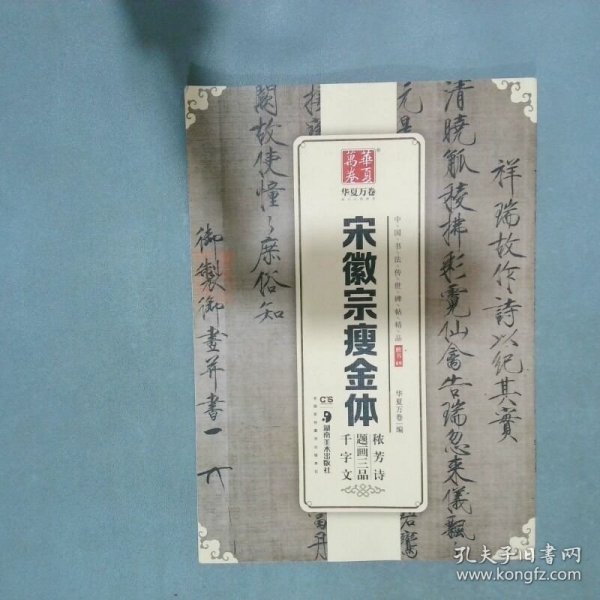 祥瑞故作詩以紀其實
清曉觚稜拂彩霓仙禽告瑞忽来儀飄
元是
闕故使憧憧庶俗知
御製御畫并書
華夏萬卷
华夏万卷
中·国·书·法·传·世·碑·帖·精·品
楷书
宋徽宗瘦金体
华夏万卷 编
秾芳诗
题画三品
千字文
湖南美术出版社
孔夫子旧书网
www.kongfz.com